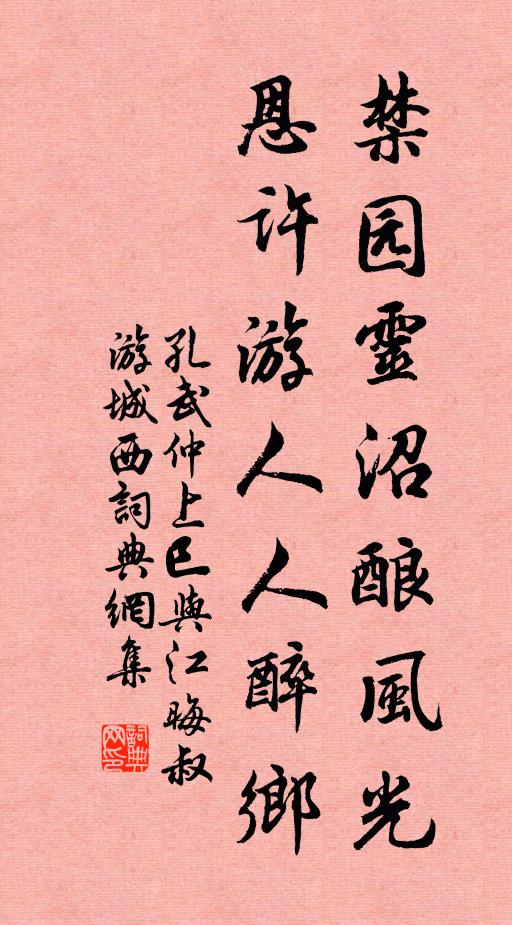 禁园靈沼酿風光
恩许游人人醉鄉
孔武仲上巳與江晦叔
游城西詞典網集
詞典
网印